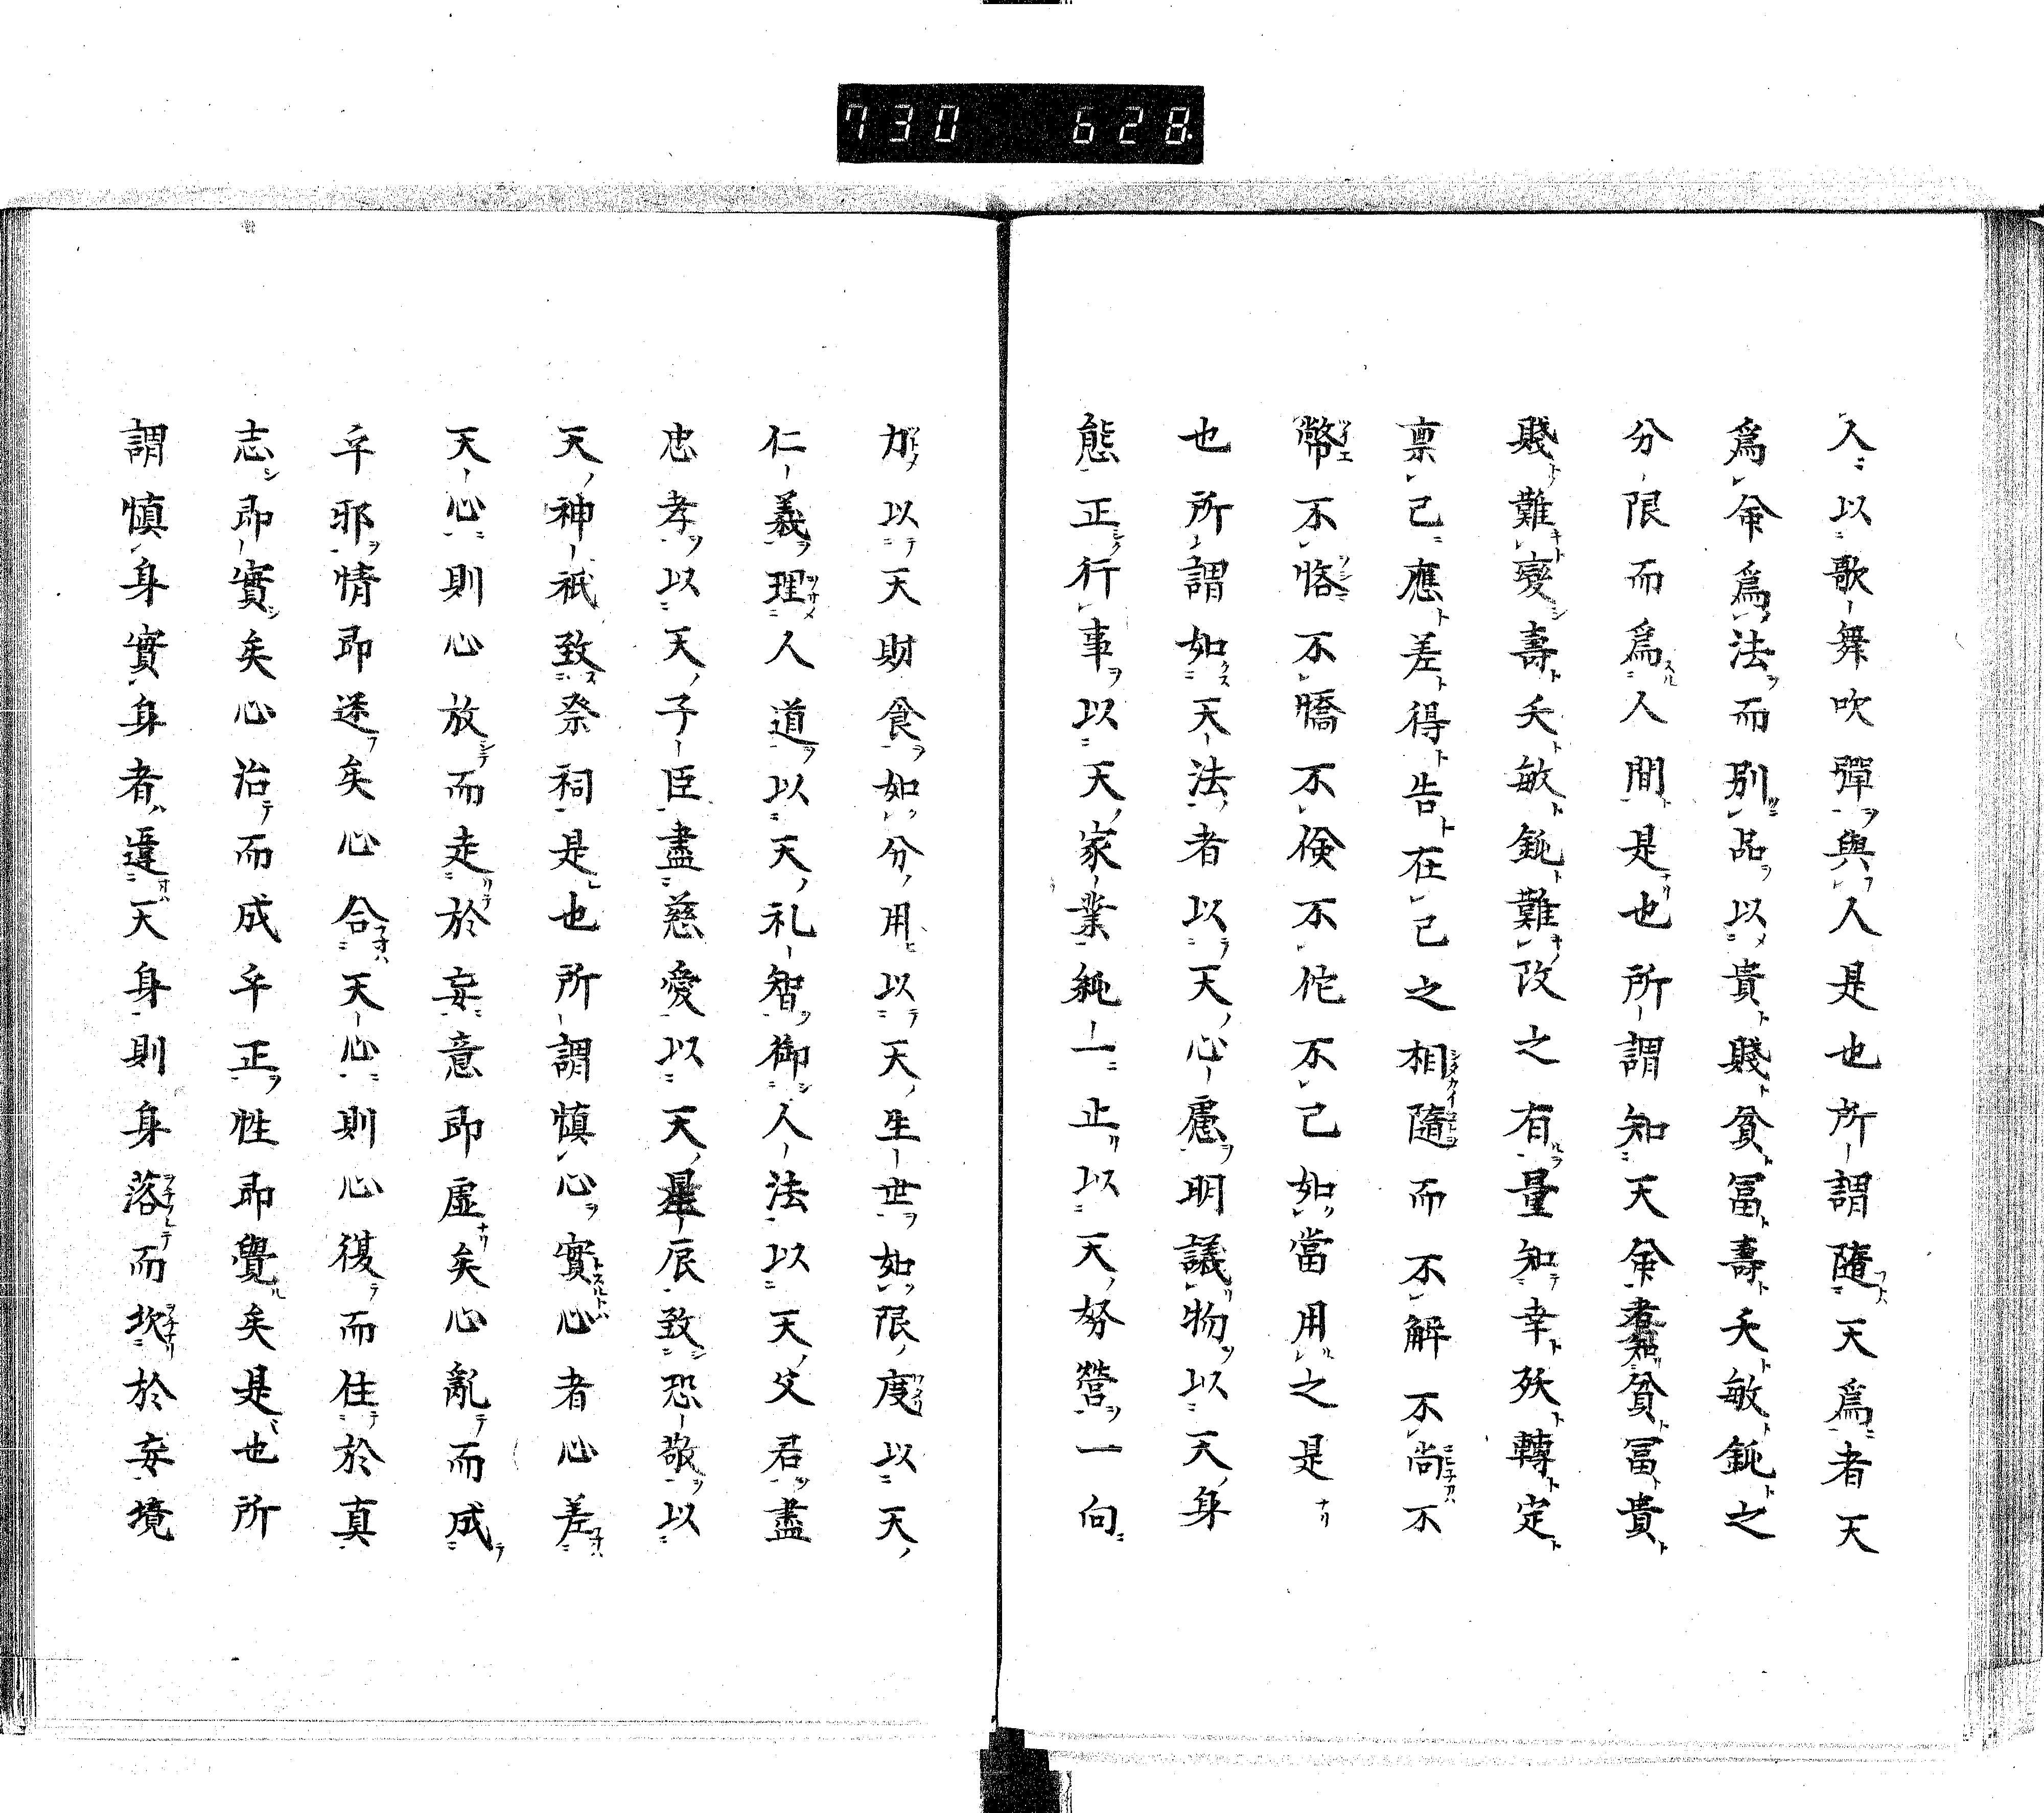 730 628
人以歌舞吹彈與人是也所謂隨天爲者天
爲命爲法而別品以貴賤貧冨壽夭敏鈍之
分限而爲人間是也所謂知天命者知貧冨貴
賤難變壽夭敏鈍難改之有量知幸殀轉定
禀己應差得告在己之相隨而不解不尚不
幣不悋不驕不儉不佗不己如當用之是
也所謂如天法者以天心慮明議物以天身
態正行事以天家業純一止以天努營一向
力以天財食如分用以天生世如限度以天
仁義理人道以天礼智御人法以天父君盡
忠孝以天子臣盡慈愛以天星辰致恐敬以
天神祇致祭祠是也所謂慎心實心者心差
天心則心放而走於妄意即虛矣心亂而成
卒邪情即迷矣心合天心則心復而住於真
志即實矣心治而成卒正性即覺矣是也所
謂慎身實身者違天身則身落而坎於妄境